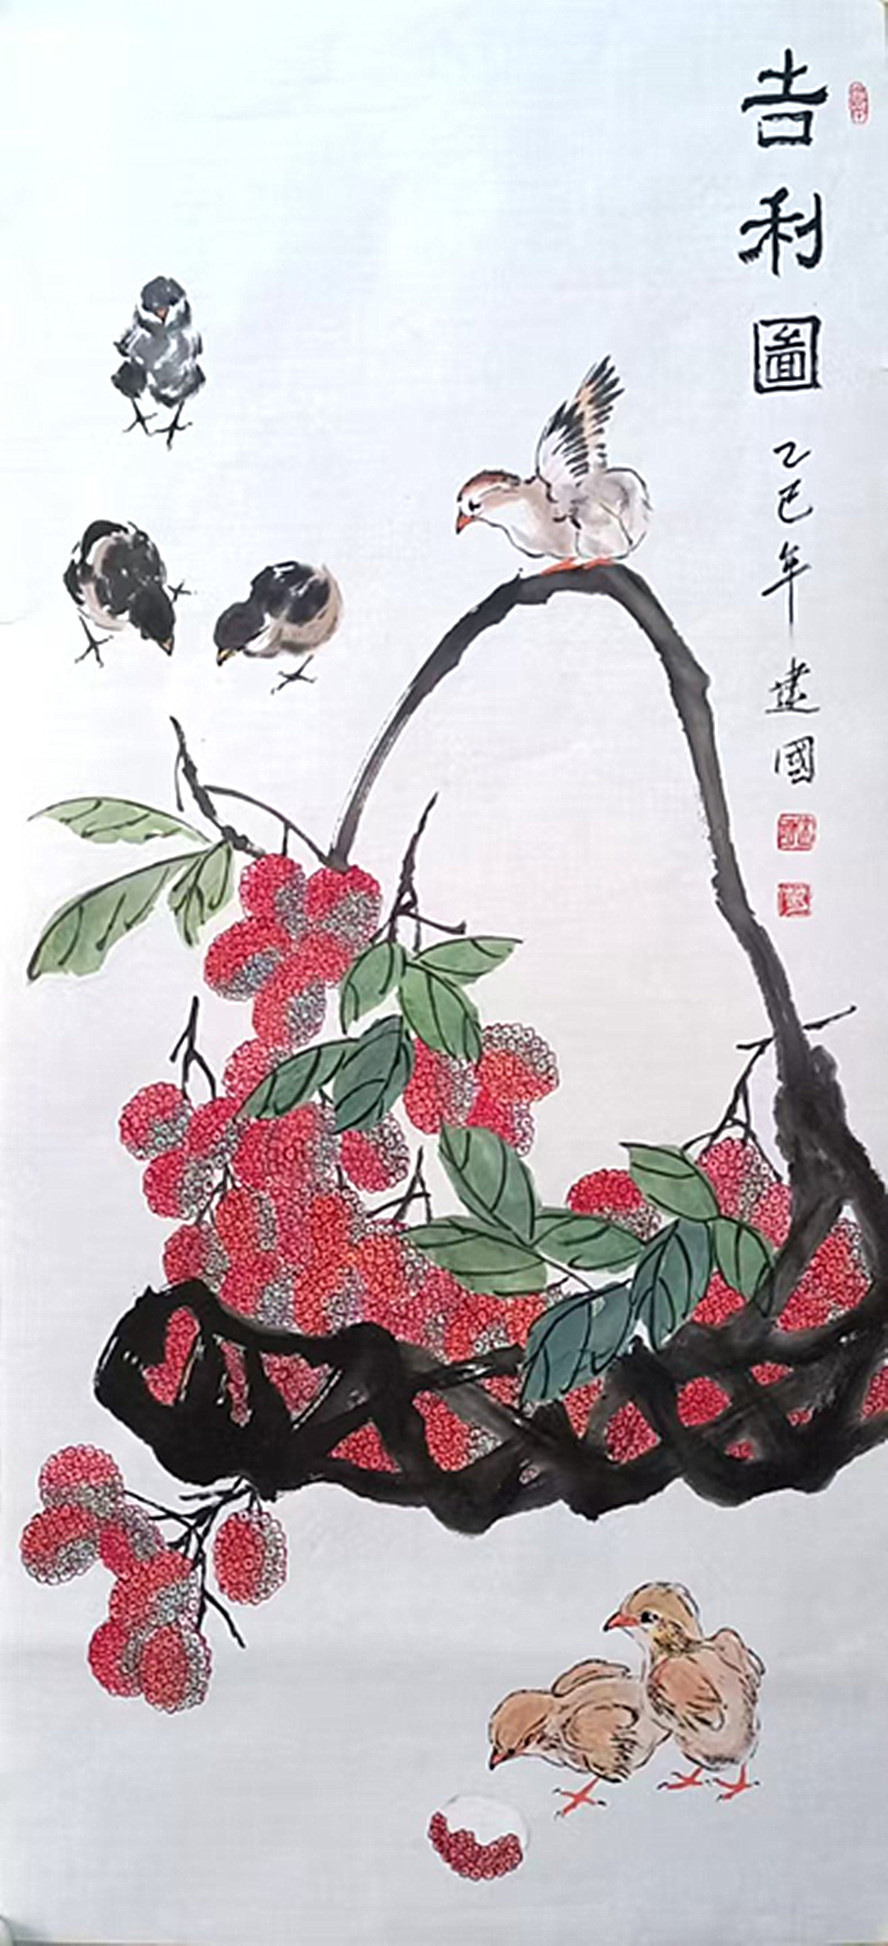 吉利圖
乙巳年 建國